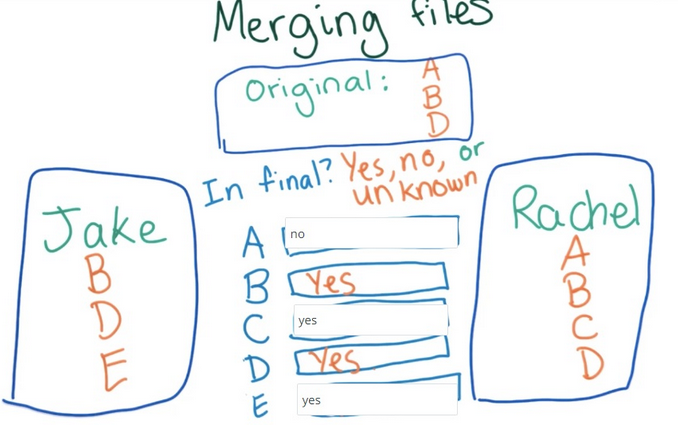 Merging files
Original: A
B
D
In final? Yes, no, or
unknown
Jake
B
D
E
A no
B Yes
C yes
D Yes
E yes
Rachel
A
B
C
D